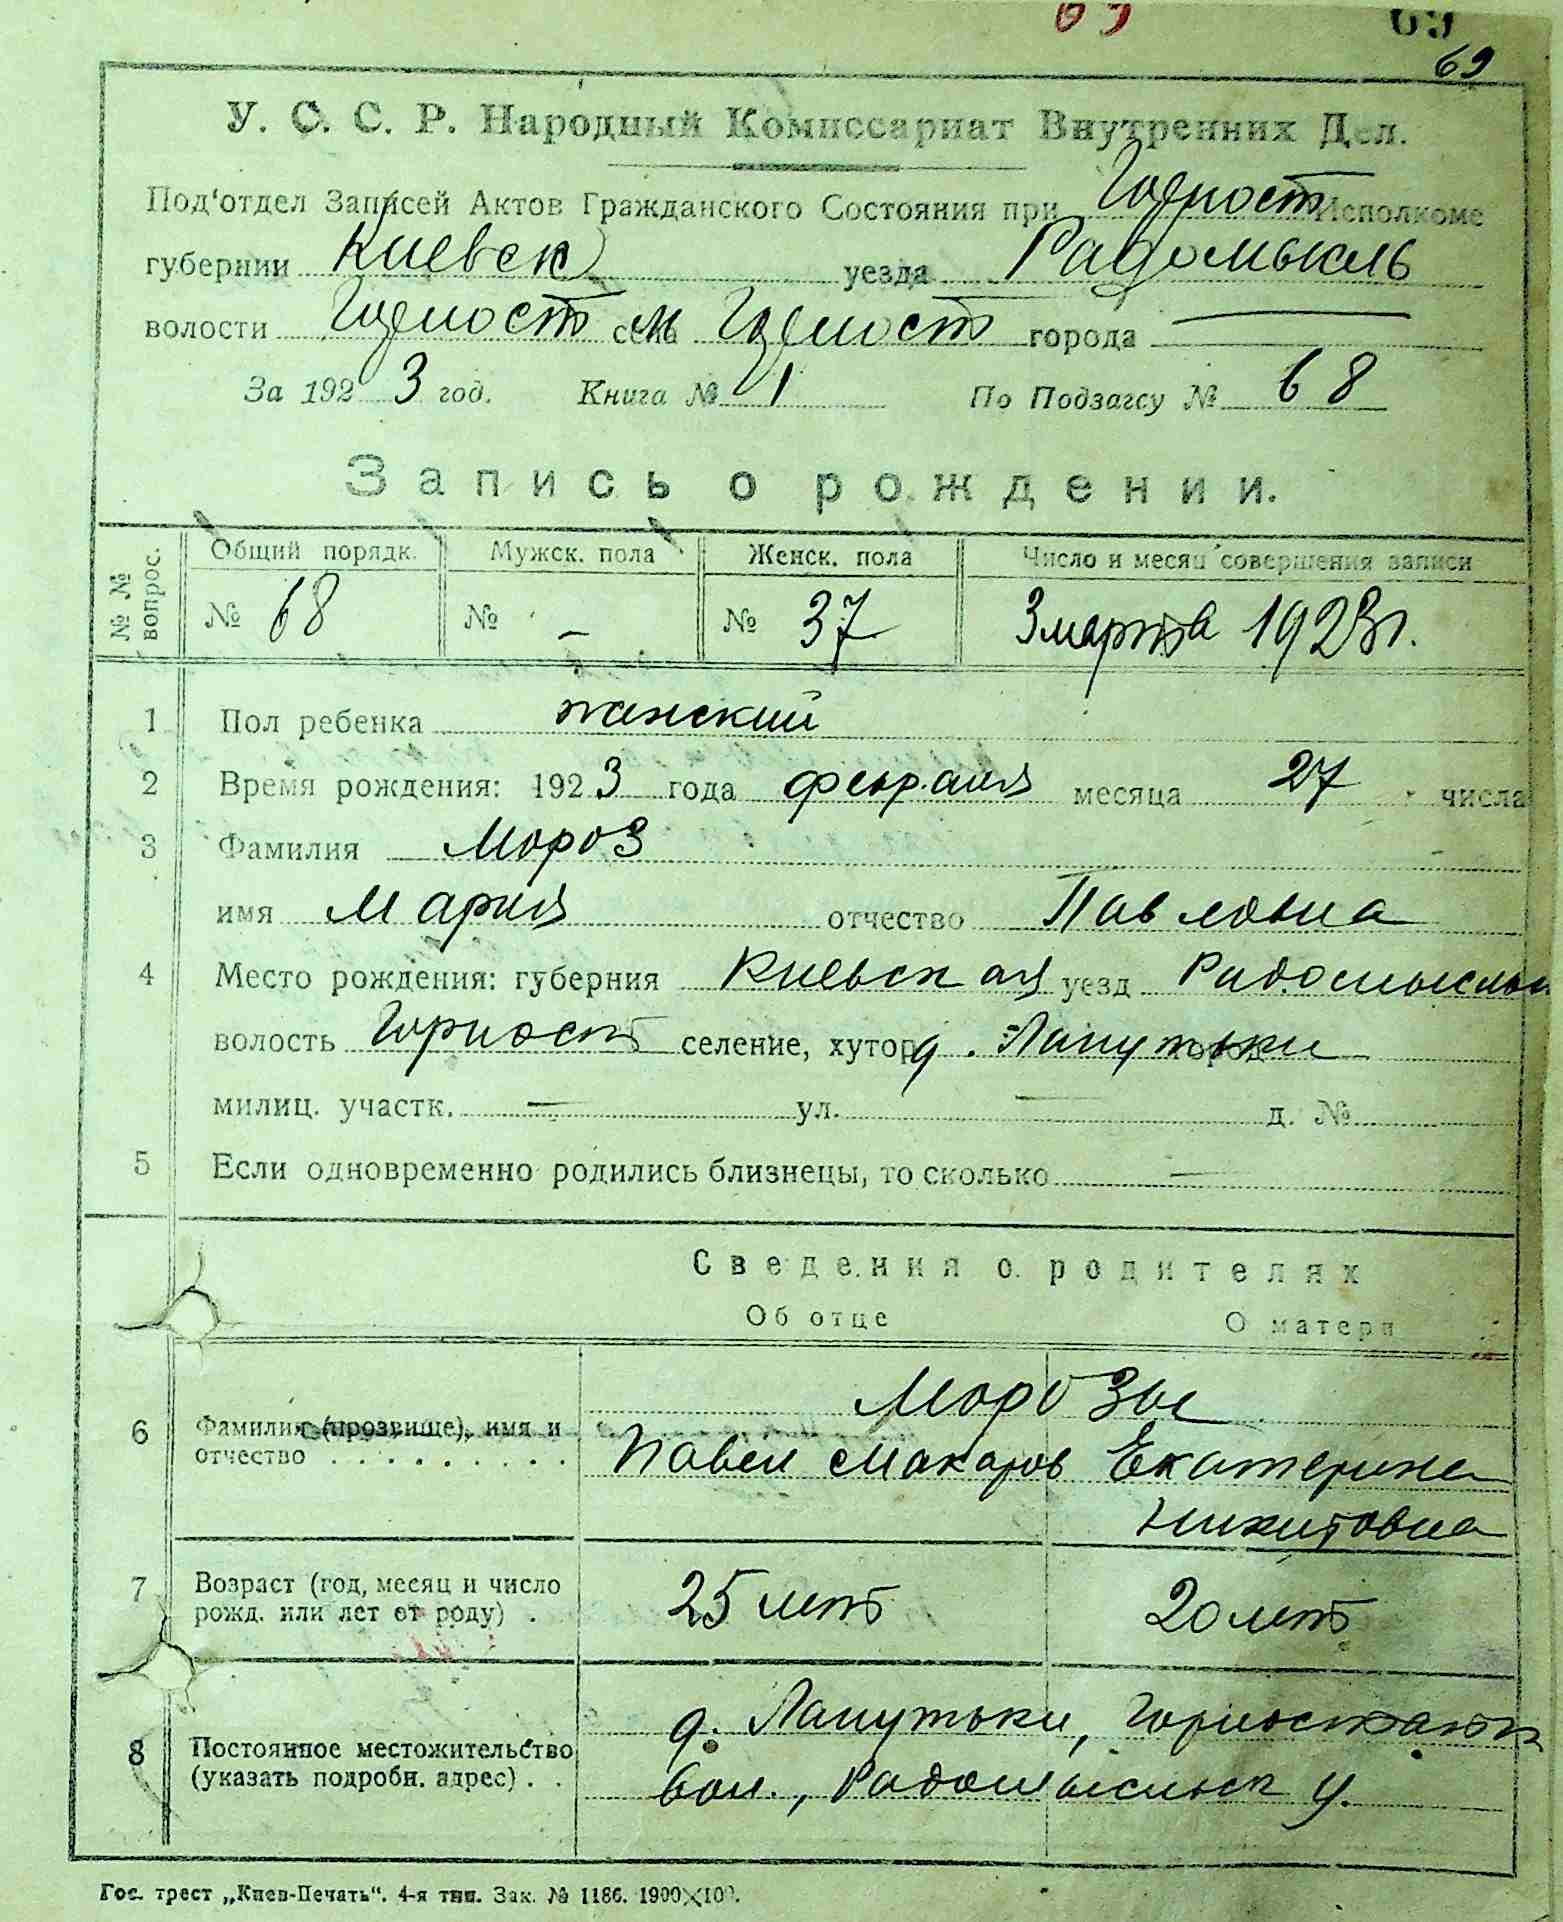 69
69
У. С. С. Р. Народный Комиссариат Внутренних Дел.
Под'отдел Записей Актов Гражданского Состояния при Горност Исполкоме
губернии Киевск уезда Радомысль
волости Горност м Горност города —
За 1923 год. Книга № 1 По Подзагсу № 68
Запись о рождении.
№ № вопрос. Общий порядк. Мужск. пола Женск. пола Число и месяц совершения записи
№ 68 № – № 37 3 марта 1923 г.
1 Пол ребенка женский
2 Время рождения: 1923 года февраля месяца 27 числа
3 Фамилия Мороз
имя Мария отчество Павловна
4 Место рождения: губерния Киевская уезд Радомысльск
волость Горност селение, хутор д. Лапутьки
милиц. участк. — ул. — д. №
5 Если одновременно родились близнецы, то сколько —
Сведения о родителях
Об отце О матери
Морозы
6 Фамилия (прозвище), имя и
отчество Павел Макаров Екатерина
Никитовна
7 Возраст (год, месяц и число
рожд. или лет от роду) . 25 лет 20 лет
8 Постоянное местожительство
(указать подробн. адрес) . . д. Лапутьки, Горностайп
вол., Радомысльск у.
Гос. трест „Киев-Печать". 4-я тип. Зак. № 1186. 1900×100.